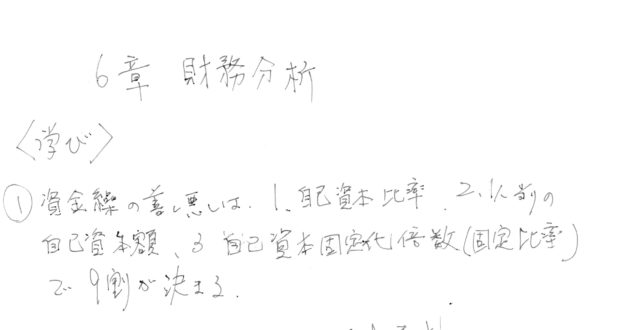 6章 財務分析
〈学び〉
① 資金繰の善し悪しは、1、自己資本比率、2、1人当りの
自己資本額、3 自己資本固定化倍数(固定比率)
で 9割が決まる.